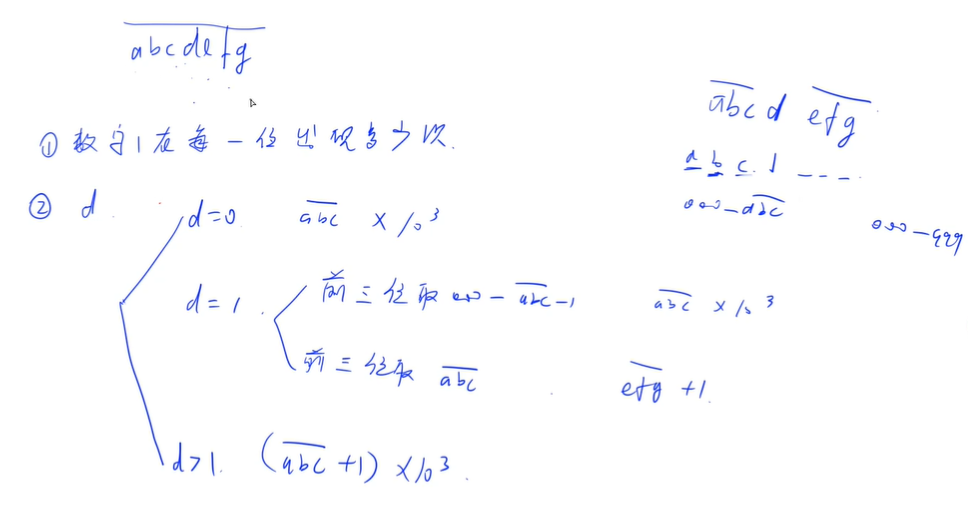 abcdefg
① 数字1在每一位出现多少次.
② d
d=0 abc × 10³
d=1 前三位取 000 - abc-1 abc × 10³
前三位取 abc efg +1.
d>1. (abc +1) × 10³.
abc d efg
a b c. 1 - - - -
000 - abc 000 - 999